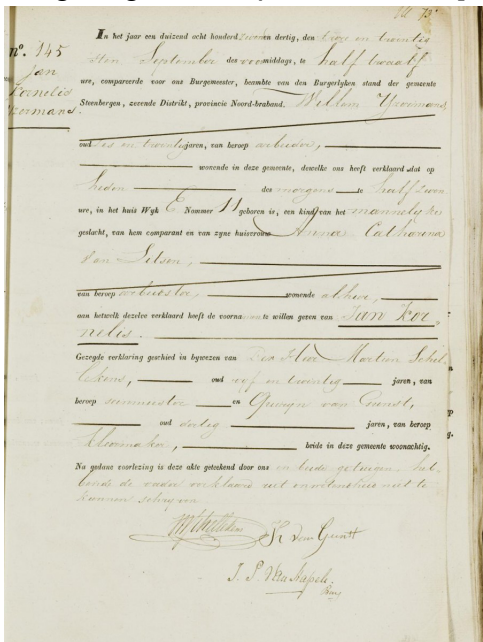 In het jaar een duizend acht honderd zeven en dertig, den
sten September des voormiddags, te half twaalf
n°. 145
Jan
Kornelis
IJzermans
ure, compareerde voor ons Burgemeester, beambte van den Burgerlyken stand der gemeente
Steenbergen, zevende Distrikt, provincie Noord-braband. Willem IJzermans,
oud zes en twintig jaren, van beroep arbeider,
wonende in deze gemeente, dewelke ons heeft verklaard dat op
heden des morgens te half zeven
ure, in het huis Wyk E Nommer 11 geboren is, een kind van het mannelyke
geslacht, van hem comparant en van zyne huisvrouw Anna Catharina
van
van beroep arbeidster, wonende alhier,
aan hetwelk dezelve verklaard heeft de voorna te willen geven van Jan Kor
nelis.
Gezegde verklaring geschied in bywezen van Martin Schil
lekens, oud vyf en twintig jaren, van
beroep en van Gunst,
oud dertig jaren, van beroep
kleermaker, beide in deze gemeente woonachtig.
Na gedane voorlezing is deze akte geteekend door ons en beide getuigen. heb
bende de vader verklaard uit onwetenheid niet te
kunnen schryven
van Gunst